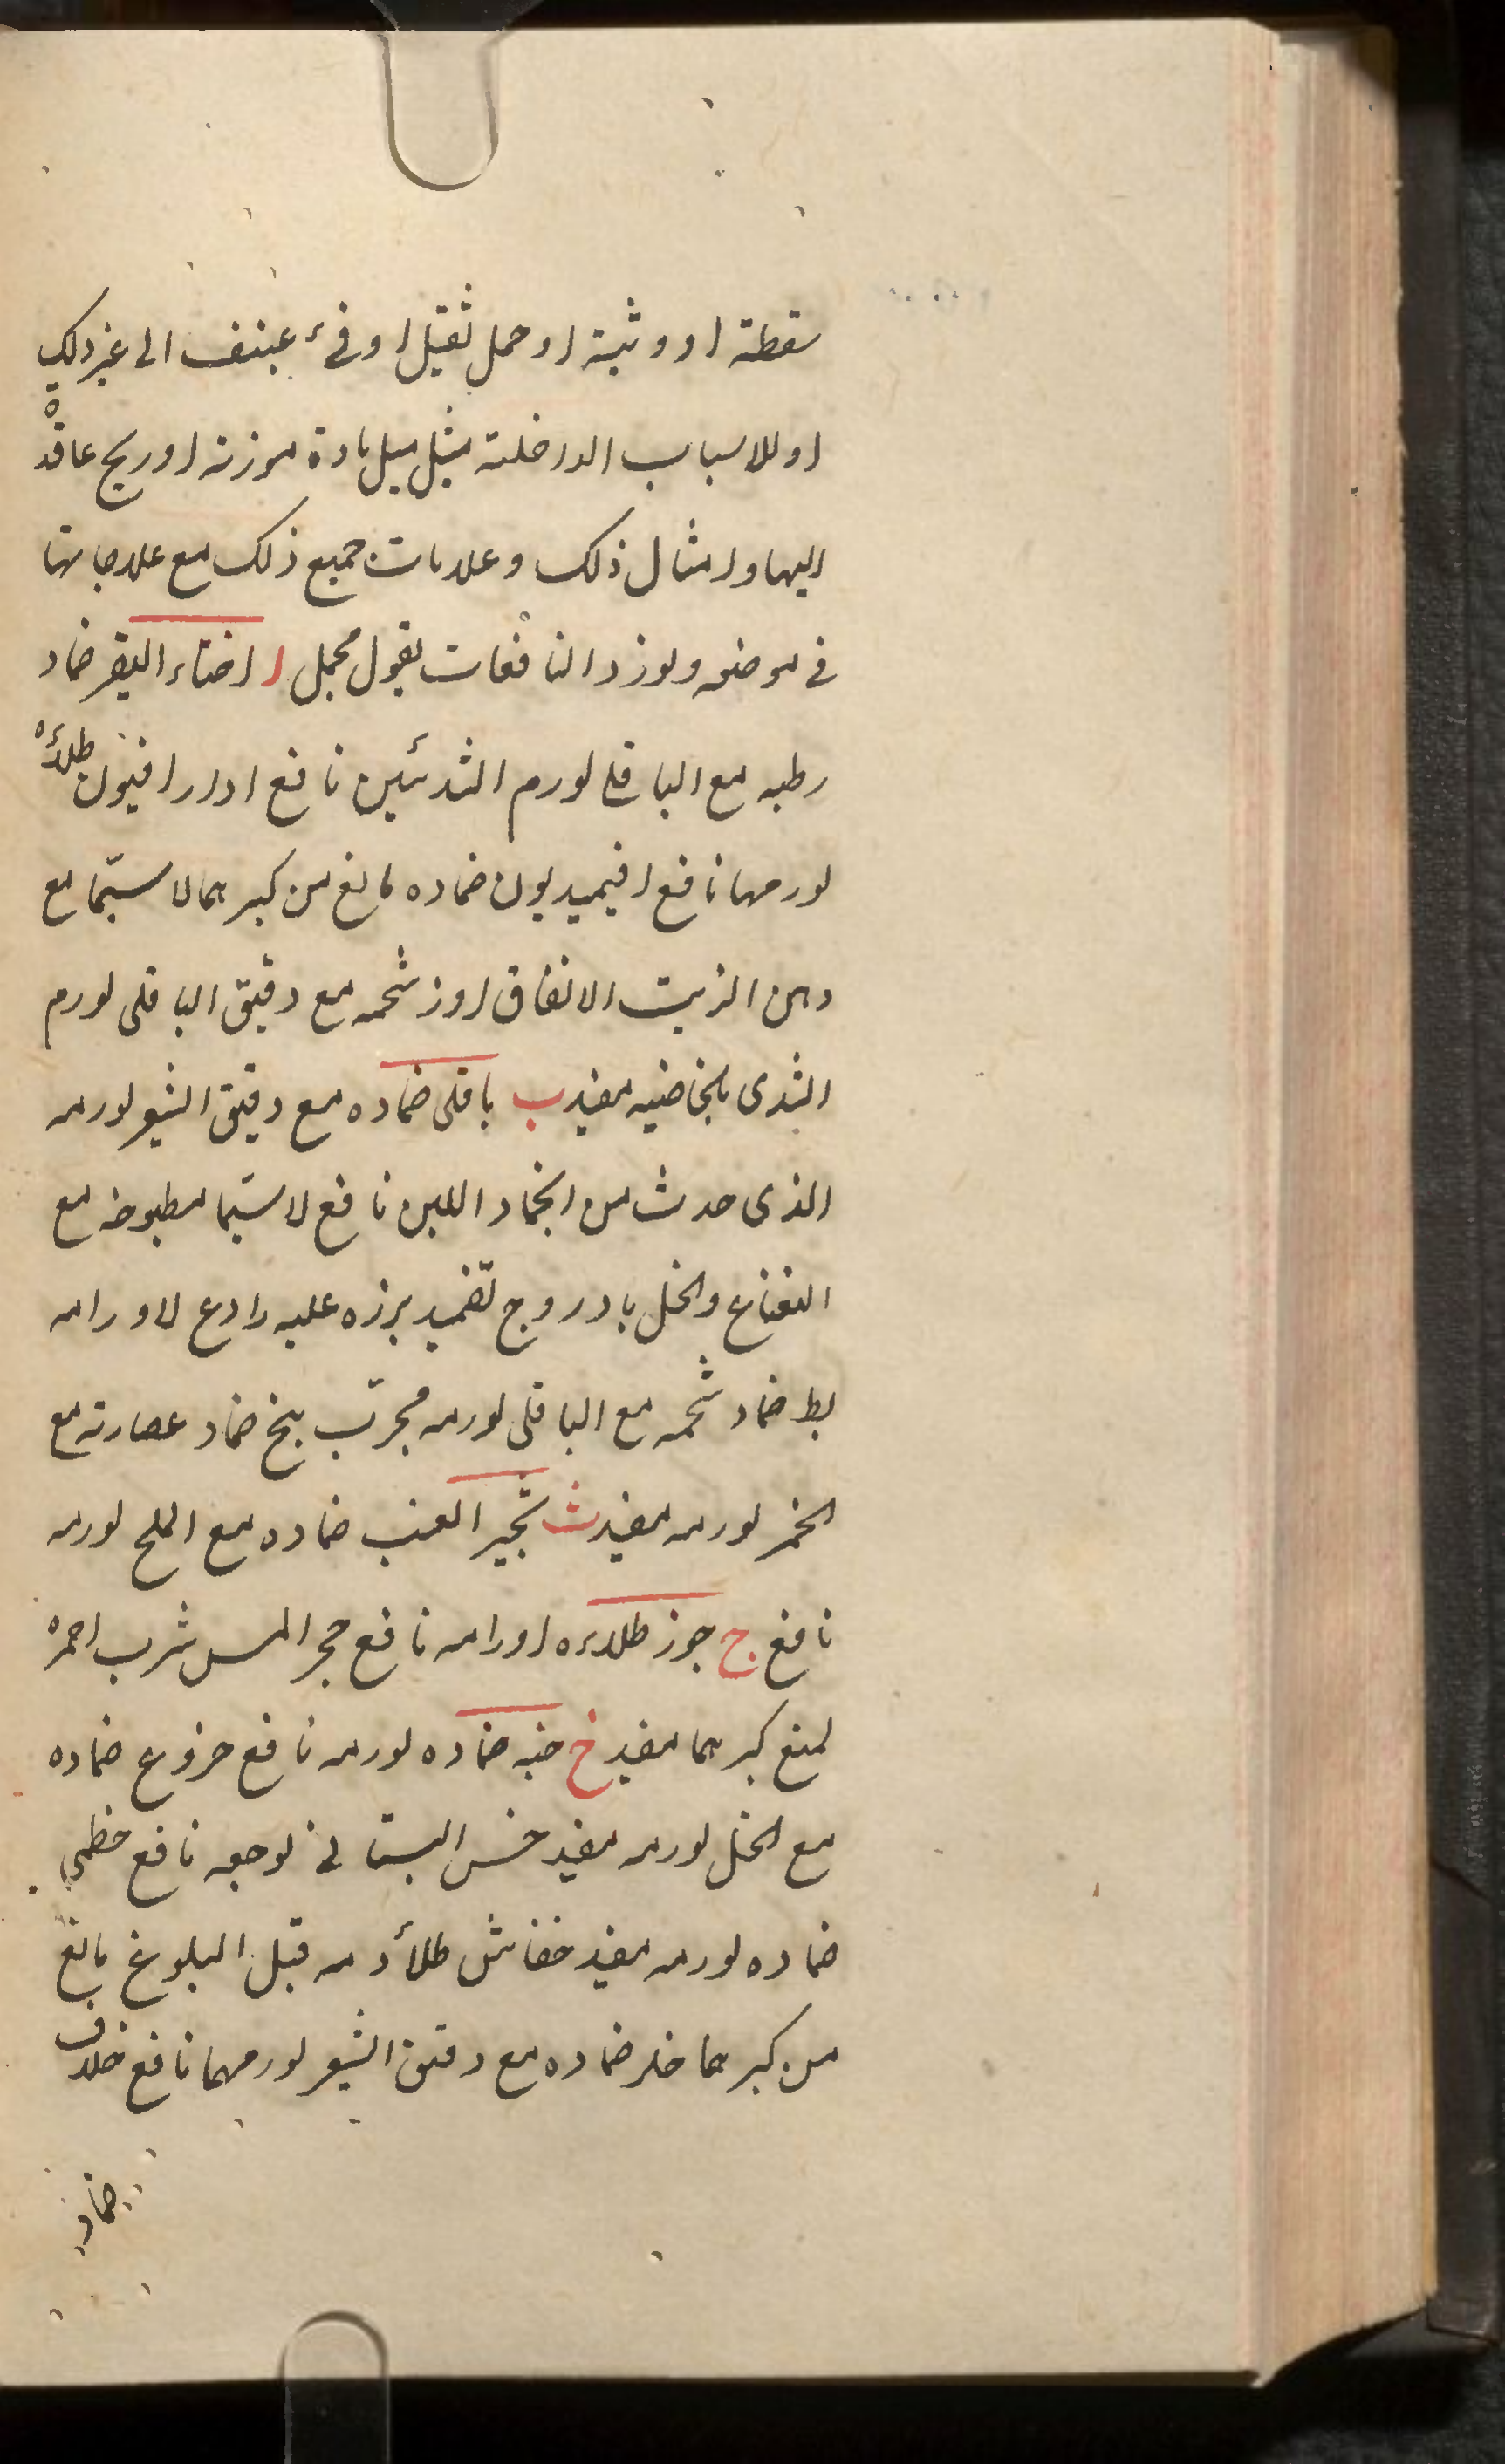 سقطة او وثبة او حمل ثقيل او قئ عنيف الى غير ذلك
او للاسباب الداخلة مثل ميل مادة موزنة او ريح عاقدة
اليها وامثال ذلك وعلامات جميع ذلك مع علاجاتها
فى موضعه ولوزد النافعات بقول مجمل ا اخثاء البقر ضماد
رطبه مع الباقلى لورم الثدئين نافع ادارافيون طلاؤه
لورمها نافع افيميديون ضماده مانع من كبرهما لا سيّما مع
دهن الزيت الانفاق اوز شحمه مع دقيق الباقلى لورم
الثدى بالخاصيه مفيد ب باقلى ضماده مع دقيق الشعير لورمه
الذى حدث من انجماد اللبن نافع لا سيّما مطبوخه مع
النعناع والخل بادروج تضميد بزره عليه رادع لاورامه
بط ضماد شحمه مع الباقلى لورمه مجرّب بنج ضماد عصارته مع
الخمر لورمه مفيد ث ثجير العنب ضماده مع الملح لورمه
نافع ج جوز طلاءه اورامه نافع حجر المس شرب احمره
لمنع كبرهما مفيد خ خبه ضماده لورمه نافع خروع ضماده
مع الخل لورمه مفيد خس البستانى لوجعه نافع خطمى
ضماده لورمه مفيد خفاش طلأ دمه قبل البلوغ مانع
من كبرهما خلر ضماده مع دقيق الشعير لورمهما نافع خلاف
ضماد